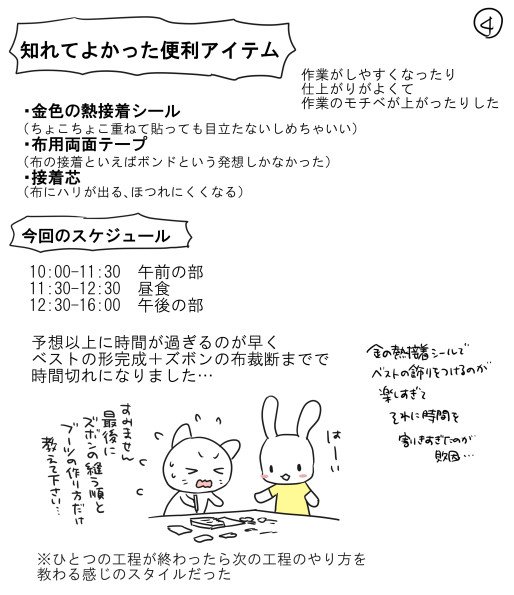 ④
知れてよかった便利アイテム
作業がしやすくなったり
仕上がりがよくて
作業のモチベが上がったりした
・金色の熱接着シール
（ちょこちょこ重ねて貼っても目立たないしめちゃいい）
・布用両面テープ
（布の接着といえばボンドという発想しかなかった）
・接着芯
（布にハリが出る、ほつれにくくなる）
今回のスケジュール
10:00-11:30 午前の部
11:30-12:30 昼食
12:30-16:00 午後の部
予想以上に時間が過ぎるのが早く
ベストの形完成＋ズボンの布裁断までで
時間切れになりました…
金の熱接着シールで
ベストの飾りをつけるのが
楽しすぎて
それに時間を
割きすぎたのが
敗因…
すみません
最後に
ズボンの縫う順と
ブーツの作り方だけ
教えて下さい…
はーい
※ひとつの工程が終わったら次の工程のやり方を
教わる感じのスタイルだった